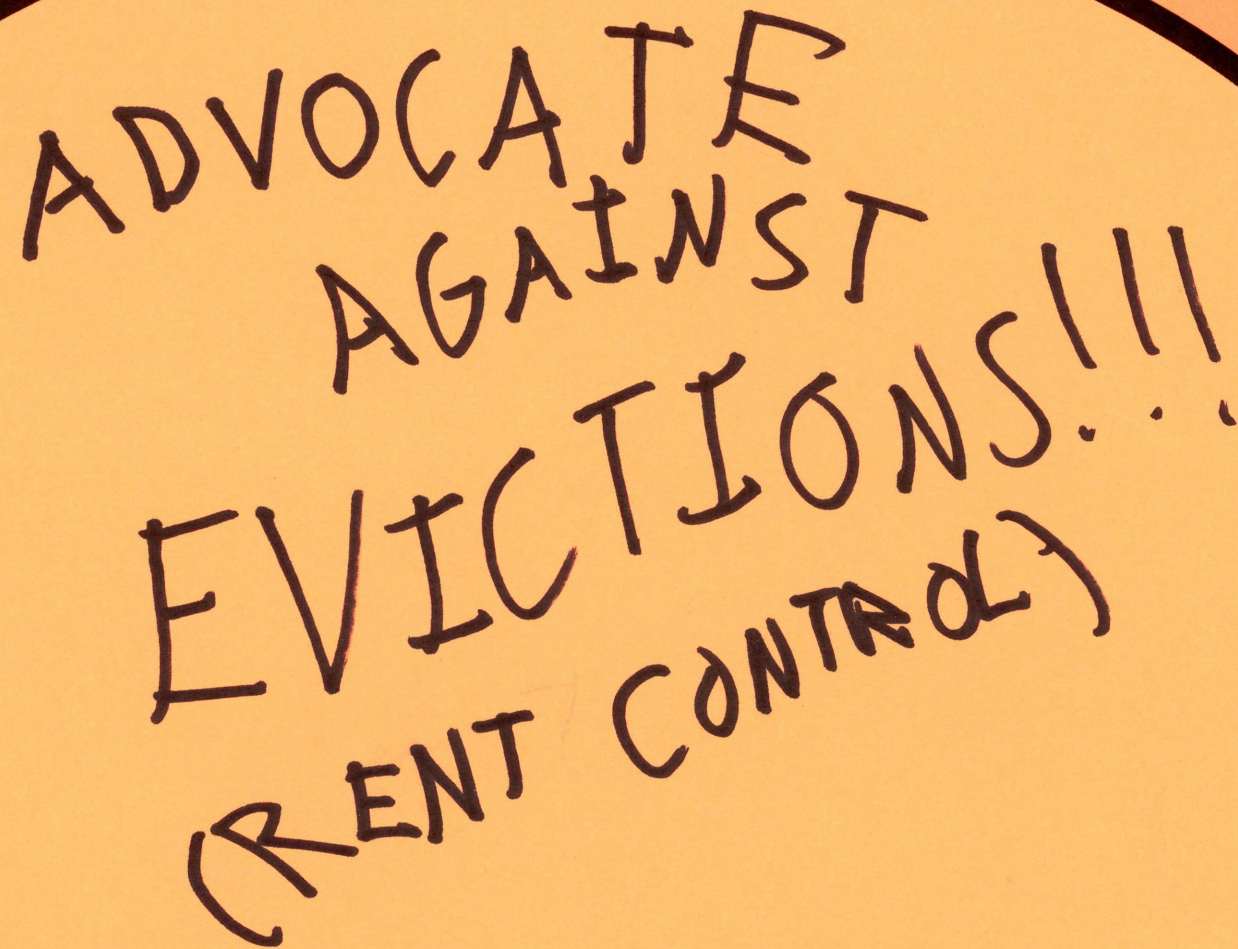 ADVOCATE
AGAINST
EVICTIONS!!!
(RENT CONTROL)